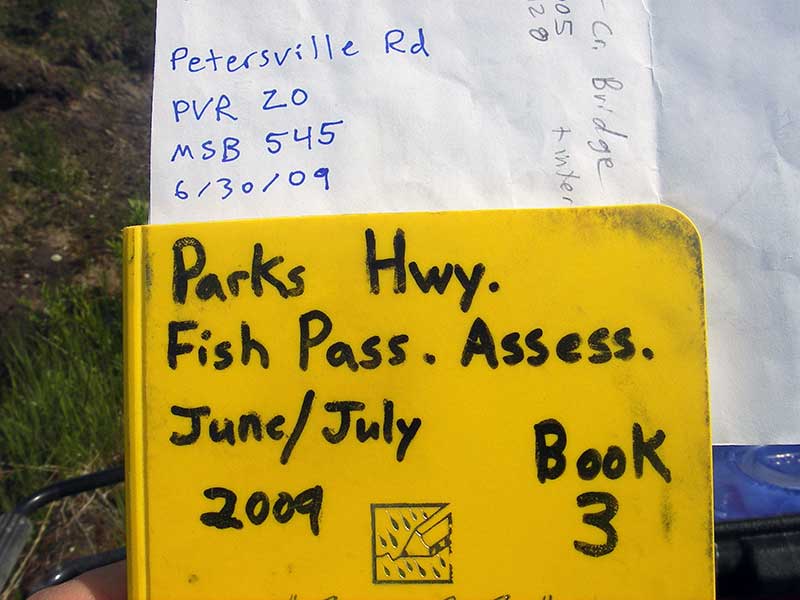 Petersville Rd
PVR 20
MSB 545
6/30/09
Cr. Bridge
Parks Hwy.
Fish Pass. Assess.
June/July
2009
Book
3